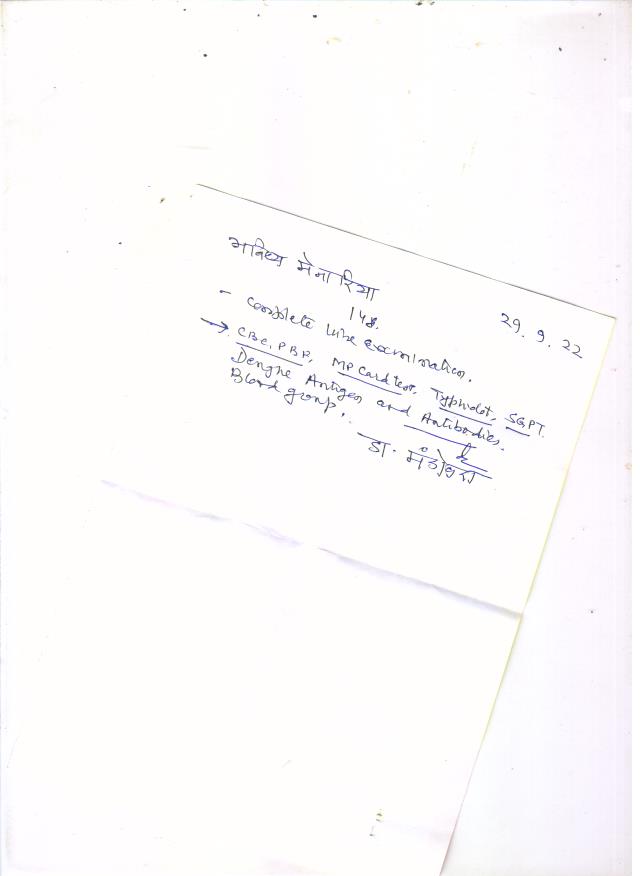 भविष्य मेनारिया
14y.
29.9.22
- Complete urine examination.
→ CBC, PBF, MP Card test, Typhidot, SGPT.
Dengue Antigen and Antibodies.
Blood group.
डा. मंडोवरा